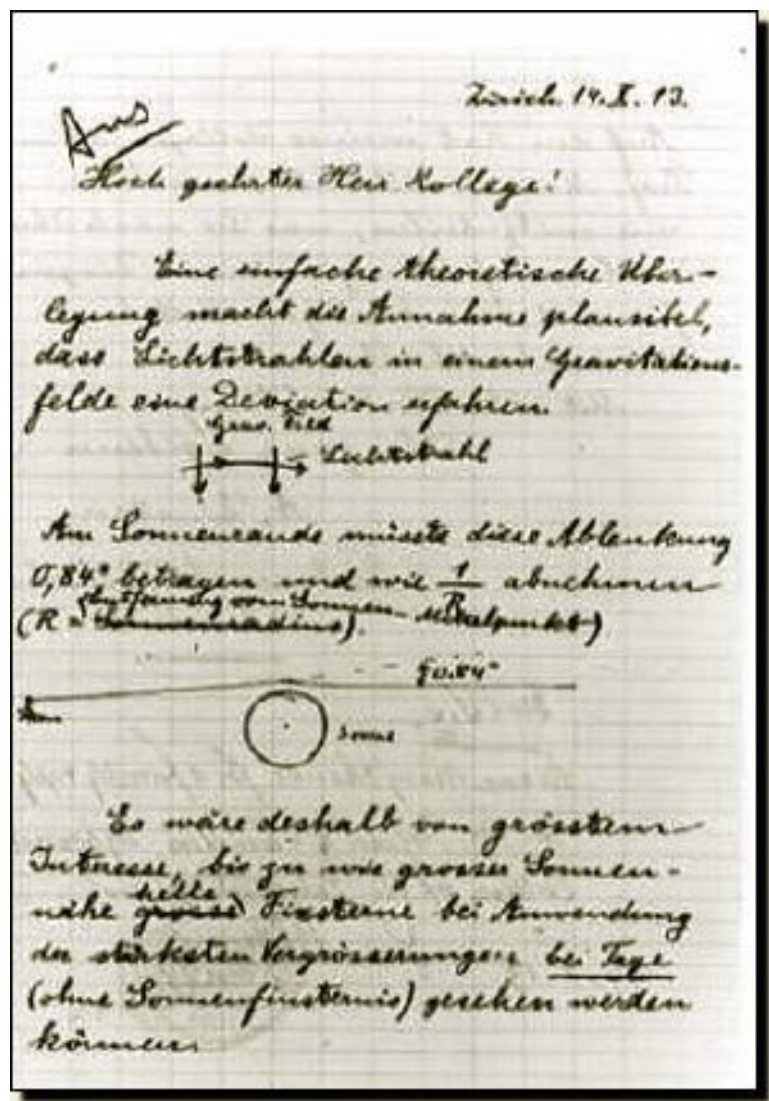 Zürich. 14. X. 13.
Hoch geehrter Herr Kollege!
Eine einfache theoretische Über-
legung macht die Annahme plausibel,
dass Lichtstrahlen in einem Gravitations-
felde eine Deviation erfahren.
Grav. Feld
Lichtstrahl
Am Sonnenrande müsste diese Ablenkung
0,84" betragen und wie 1/R abnehmen
(R = Sonnenradius). Entfernung vom Sonnen-Mittelpunkt)
0.84"
Sonne
Es wäre deshalb von grösstem
Interesse, bis zu wie grosser Sonnen-
nähe grosse helle Fixsterne bei Anwendung
der stärksten Vergrösserungen bei Tage
(ohne Sonnenfinsternis) gesehen werden
können.